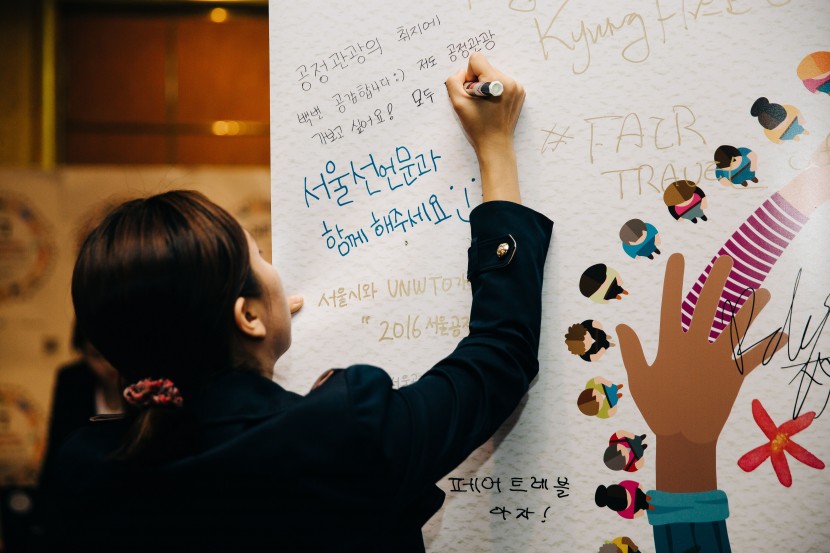 공정관광의 취지에
백번 공감합니다:) 저도 공정관광
가보고 싶어요! 모두
서울선언문과
함께 해주세요
서울시와 UNWTO가
"2016 서울공정
Kyung Hee
# FAIR
TRAVEL
페어트레블
아자!